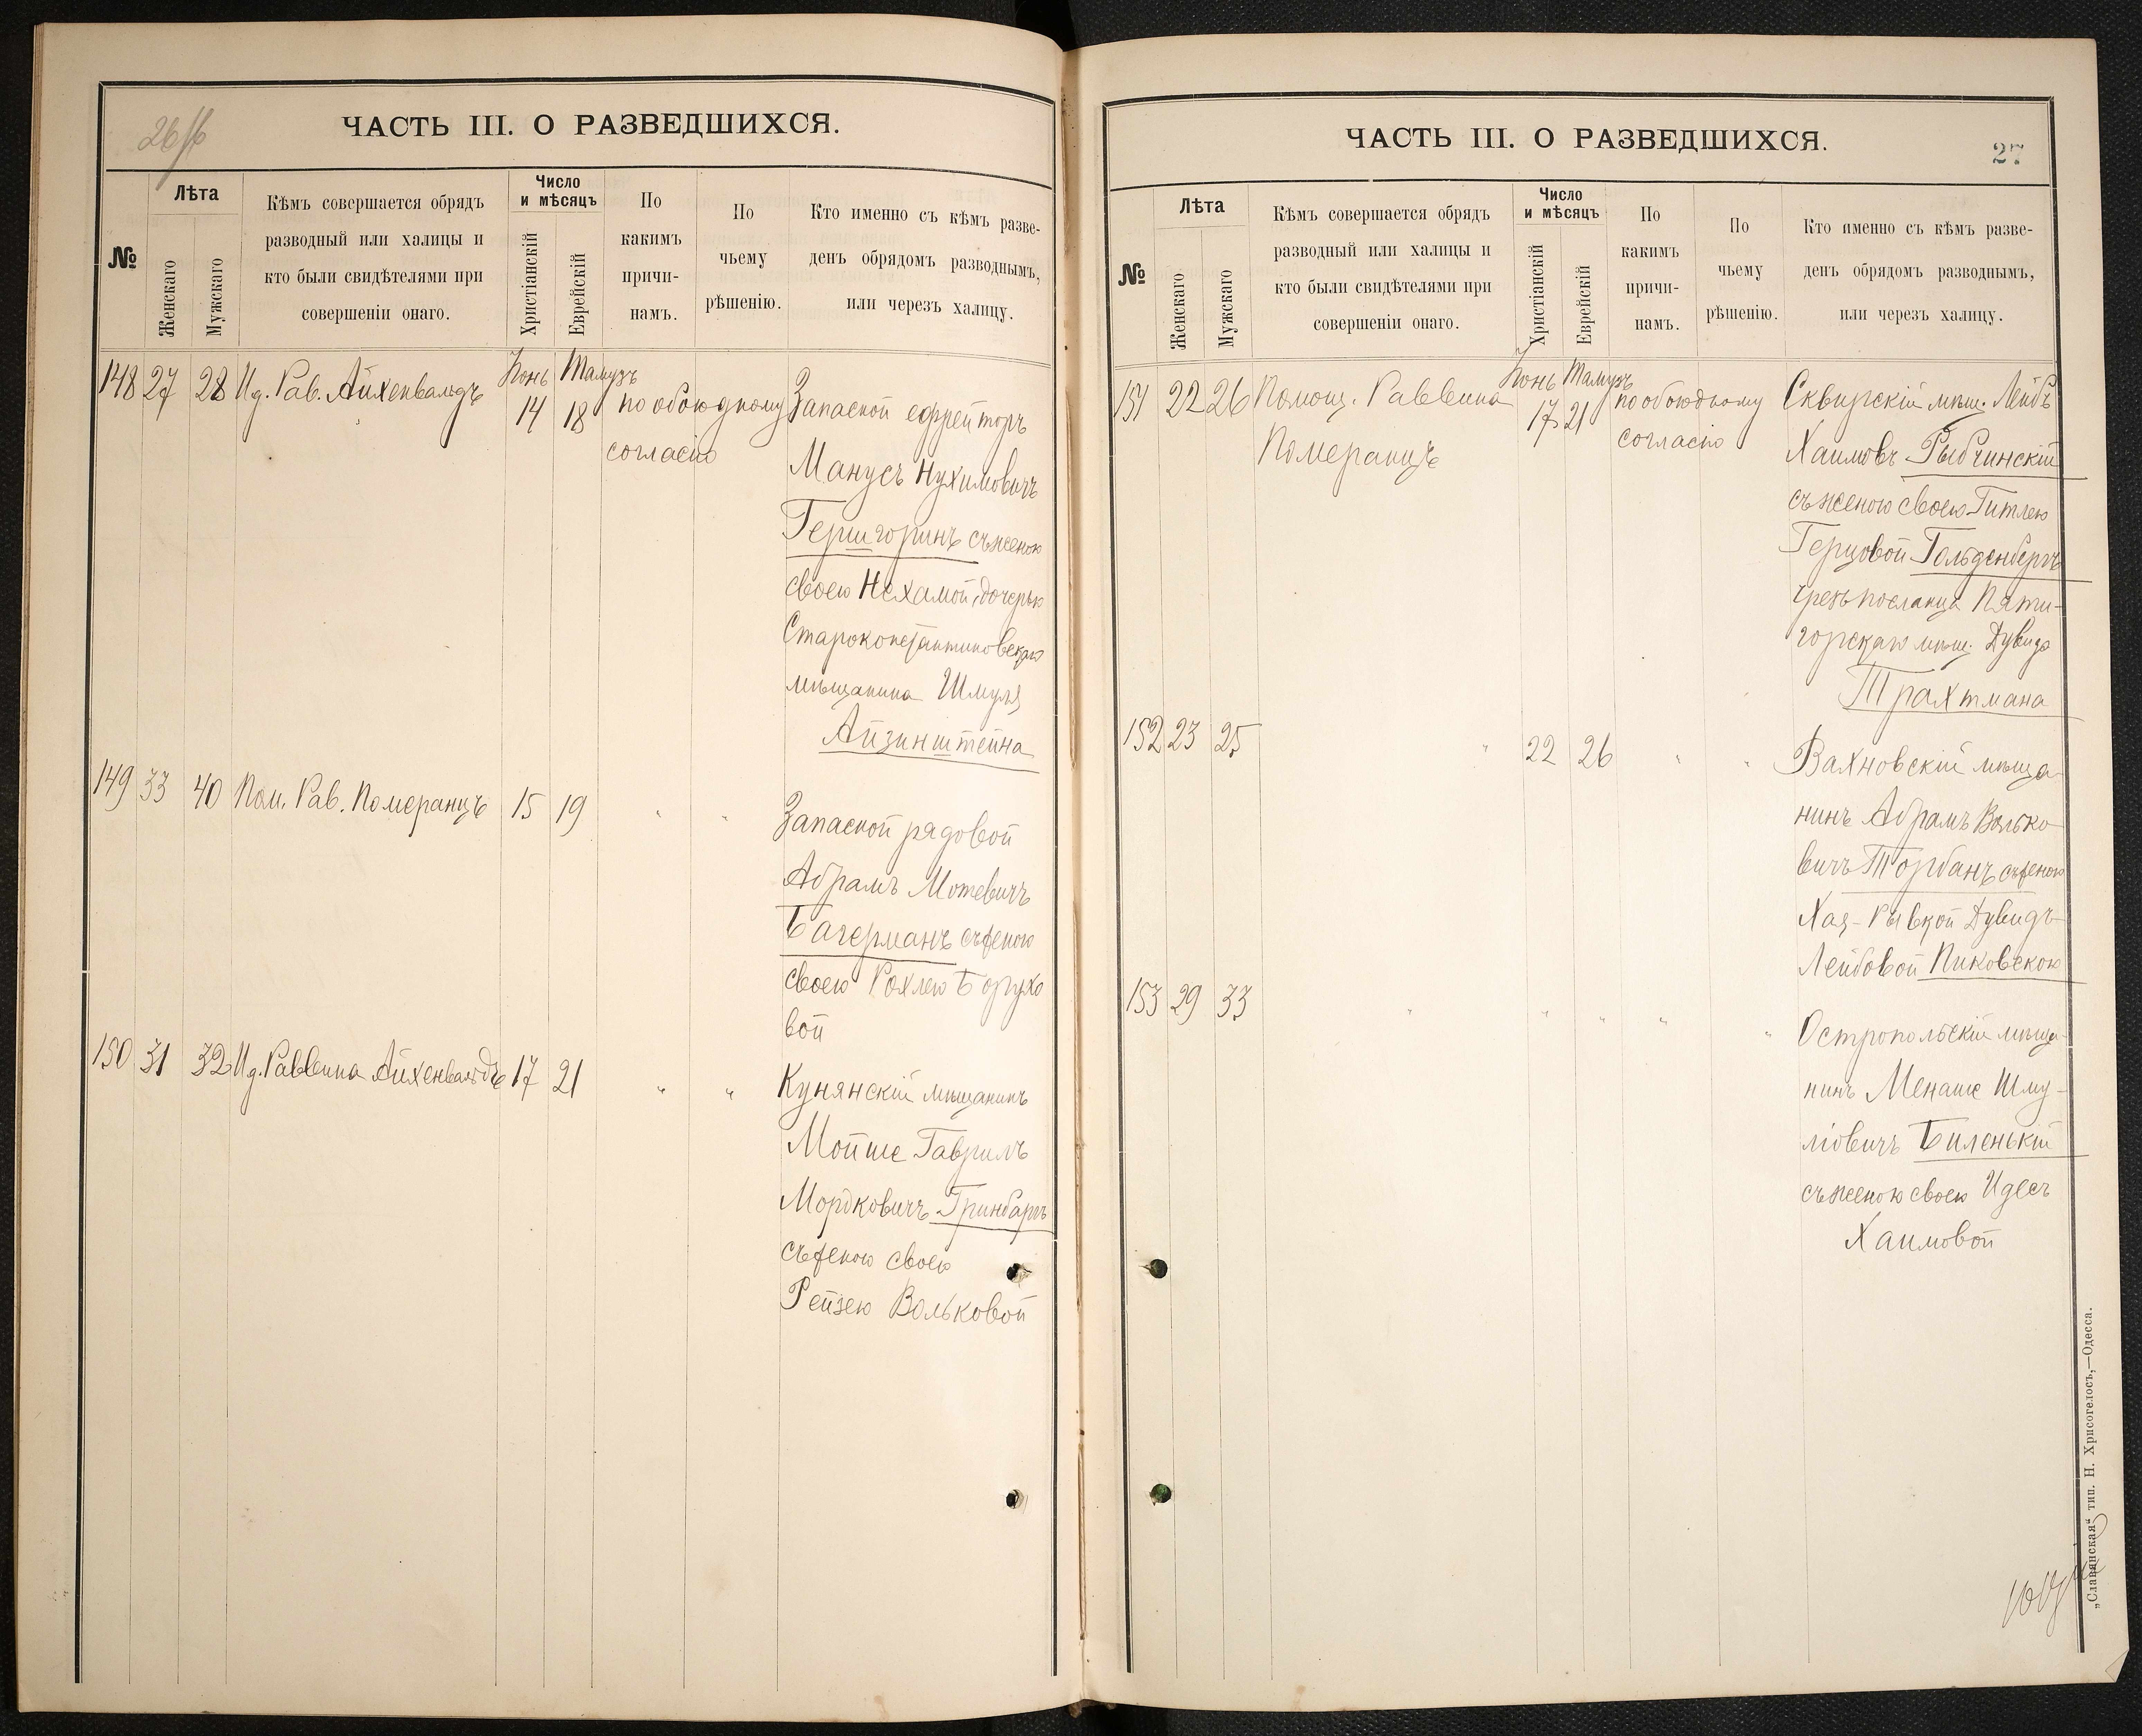 26/б
ЧАСТЬ III. О РАЗВЕДШИХСЯ.
№
Лѣта
Женскаго
Мужскаго
Кѣмъ совершается обрядъ
разводный или халицы и
кто были свидѣтелями при
совершеніи онаго.
Число
и мѣсяцъ
Христіанскій
Еврейскій
По
какимъ
причи-
намъ.
По
чьему
рѣшенію.
Кто именно съ кѣмъ разве-
денъ обрядомъ разводнымъ,
или черезъ халицу.
148 27 28 Ид. Рав. Айхенвальдъ Іюнь 14 Тамузъ 18 по обоюдному
согласію
Запасной ефрейторъ
Манусъ Нухимовичъ
Гершгоринъ съ женою
своею Нехамой, дочерью
Староконстантиновскаго
мѣщанина Шмуля
Айзинштейна
149 33 40 Пом. Рав. Померанцъ 15 19 " "
Запасной рядовой
Абрамъ Мотевичъ
Бачерманъ съ женою
своею Рохлею Борухо
вой
150 31 32 Ид. Раввина Айхенвальдъ 17 21 " "
Кунянскій мѣщанинъ
Мойше Гаврилъ
Мордковичъ Гринбаргъ
съ женою своею
Рейзею Вольковой
ЧАСТЬ III. О РАЗВЕДШИХСЯ.
27
№
Лѣта
Женскаго
Мужскаго
Кѣмъ совершается обрядъ
разводный или халицы и
кто были свидѣтелями при
совершеніи онаго.
Число
и мѣсяцъ
Христіанскій
Еврейскій
По
какимъ
причи-
намъ.
По
чьему
рѣшенію.
Кто именно съ кѣмъ разве-
денъ обрядомъ разводнымъ,
или черезъ халицу.
151 22 26 Помощ. Раввина Іюнь 17 Тамузъ 21 по обоюдному
Померанцъ согласію
Сквирскій мѣщ. Лейбъ
Хаимовъ Рыбчинскій
съ женою своею Гитлею
Герцовой Гольденбергъ
чрезъ посланца Пяти-
горскаго мѣщ. Дувида
Трахтмана
152 23 25 " 22 26 " "
Вахновскій мѣща-
нинъ Абрамъ Волько-
вичъ Торбанъ съ женою
Хая-Рывкой Дувидъ-
Лейбовой Пиковскою
153 29 33 " " " " "
Остропольскій мѣща-
нинъ Менаше Шму-
ліовичъ Биленькій
съ женою своею Идесъ
Хаимовой
„Славянская“ тип. Н. Хрисогелосъ,—Одесса.